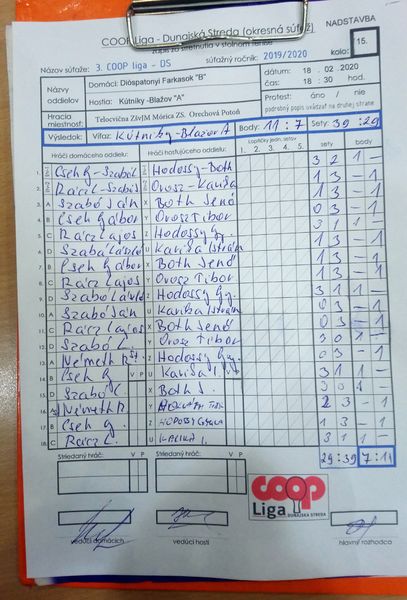 NADSTAVBA
COOP Liga - Dunajská Streda (okresná súťaž)
zápis zo stretnutia v stolnom tenise
Názov súťaže: 3. COOP liga - DS súťažný ročník: 2019/2020 kolo: 15.
Názov oddielov
Domáci: Dióspatonyi Farkasok "B"
Hostia: Kútniky-Blažov "A"
dátum: 18 . 02 . 2020
čas: 18 : 30 hod.
Hracia miestnosť: Telocvičňa ZŠvJM Mórica ZS. Orechová Potôň
Protest: áno / nie
podrobný popis uviesť na druhej strane
Výsledok: Víťaz: Kútniky-Blažov A Body: 11 : 7 Sety: 39 : 29
Hráči domáceho oddielu: Hráči hosťujúceho oddielu: Loptičky jedn. setov sety body
1. 2. 3. 4. 5.
1. Cseh G-Szabó L Hodossy-Both 3 2 1 -
2. Rácz L-Szabó S Orosz-Karika 1 3 - 1
3. A Szabó Ján X Both Jenő 1 3 - 1
4. B Cseh Gábor Y Orosz Tibor 0 3 - 1
5. C Rácz Lajos Z Hodossy Gy. 3 1 1 -
6. D Szabó László U Karika István 1 3 - 1
7. B Cseh Gábor X Both Jenő 1 3 - 1
8. C Rácz Lajos Y Orosz Tibor
9. D Szabó László Z Hodossy Gy.
10. A Szabó Ján U Karika István
11. C Rácz Lajos X Both Jenő 0 3 - 1
12. D Szabó L. Y Orosz Tibor 3 0 1 -
13. A Németh R. Z Hodossy Gy. 0 3 - 1
14. B Cseh G U Karika I. 3 1 1 -
15. Szabó L. X Both J.
16. Németh R. Y 2 3 - 1
17. B Cseh G. Z Hodossy Gyula 1 3 - 1
18. C Rácz L. U Karika I. 3 1 1 -
29:39 7:11
Striedaný hráč: V P Striedaný hráč: V P
COOP
Liga
DUNAJSKÁ STREDA
vedúci domácich vedúci hostí hlavný rozhodca